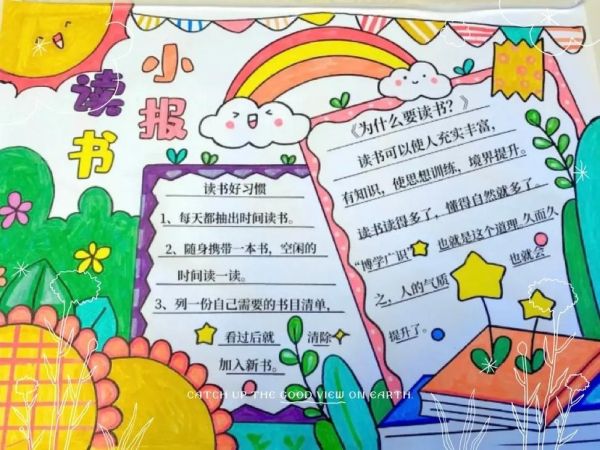 读书
小报
读书好习惯
1、每天都抽出时间读书。
2、随身携带一本书，空闲的
时间读一读。
3、列一份自己需要的书目清单，
看过后就 清除
加入新书。
《为什么要读书？》
读书可以使人充实丰富，
有知识，使思想训练，境界提升。
读书读得多了，懂得自然就多了。
“博学广识” 也就是这个道理，久而久
之，人的气质 也就会
提升了。
CATCH UP THE GOOD VIEW ON EARTH.